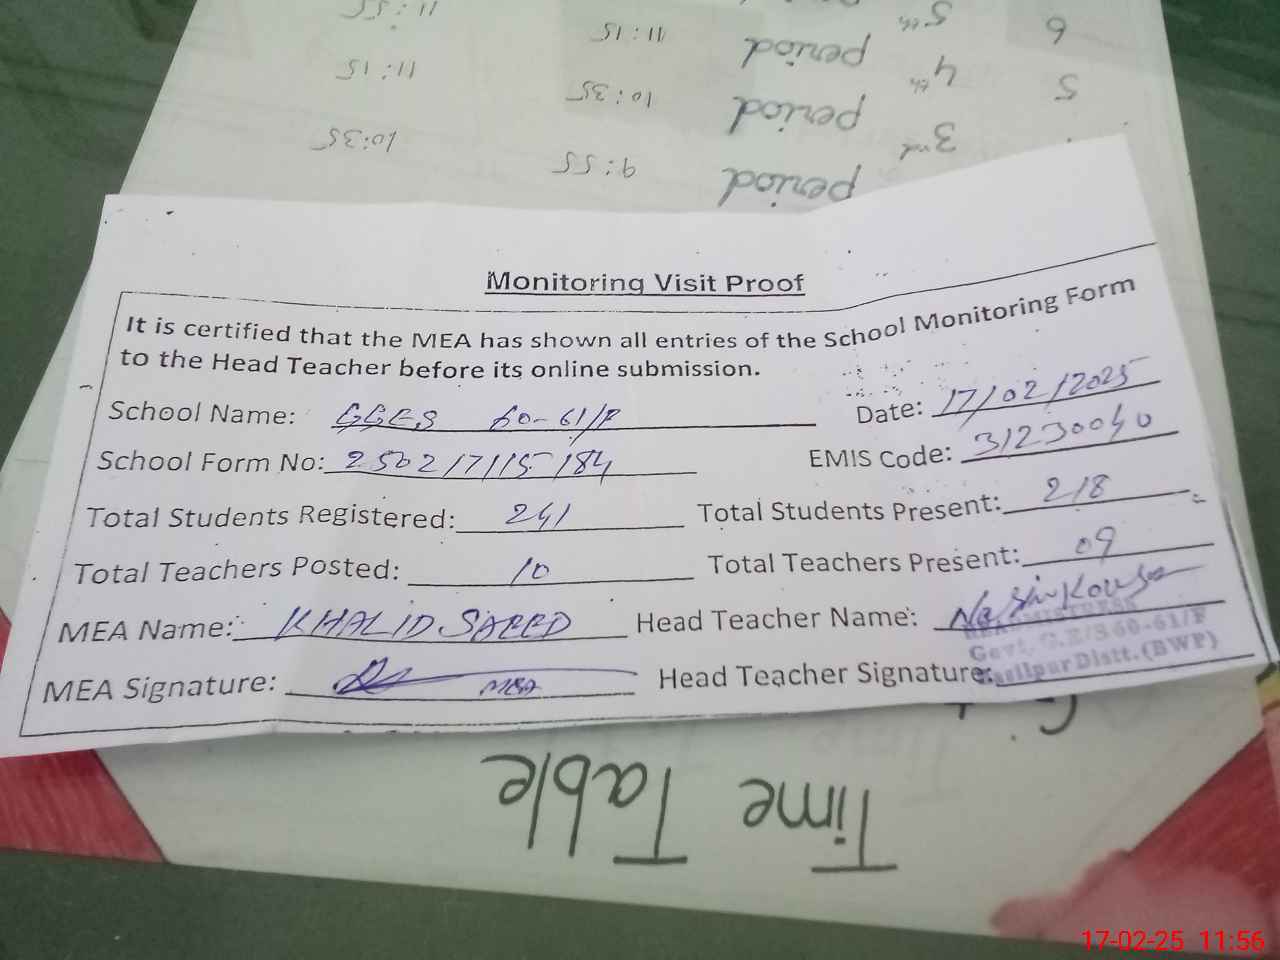 6 5th period 11:15 11:55
5 4th period 10:35 11:15
3rd period 9:55 10:35
Monitoring Visit Proof
It is certified that the MEA has shown all entries of the School Monitoring Form
to the Head Teacher before its online submission.
School Name: GGES 60-61/P Date: 17/02/2025
School Form No: 2502/7/15/184 EMIS Code: 31230040
Total Students Registered: 241 Total Students Present: 218
Total Teachers Posted: 10 Total Teachers Present: 09
MEA Name: KHALID SAEED Head Teacher Name:
HEADMISTRESS
MEA Signature: MEA Head Teacher Signature:
Govt. G.E/S 60-61/P
Distt. (BWP)
Time Table
17-02-25 11:56